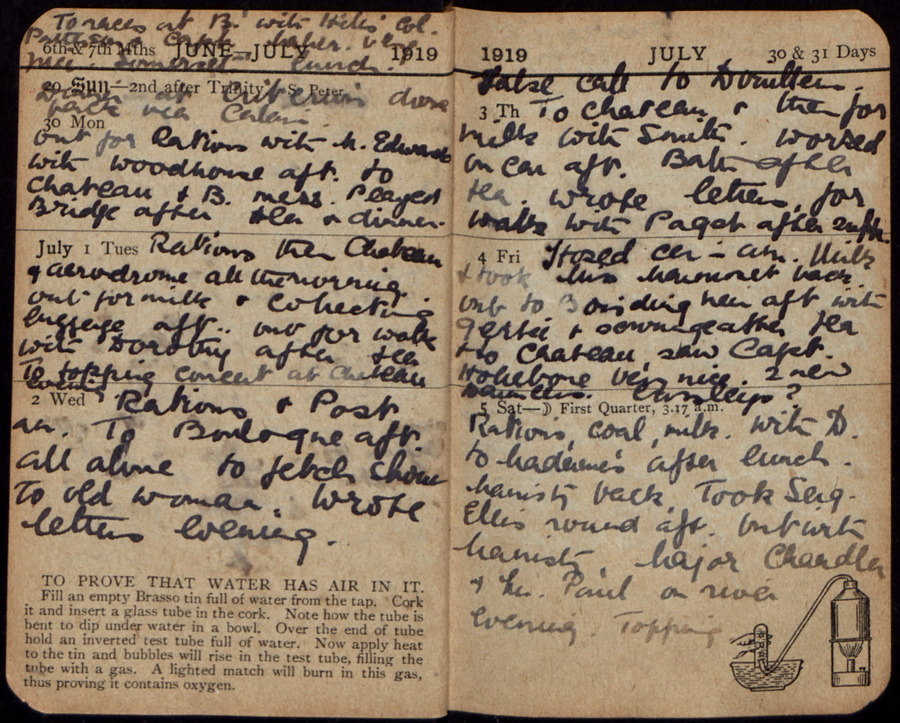 To races at B. with Hills Col.
6th & 7th Mths JUNE—JULY 1919
lunch.
29 Sun—2nd after Trinity. S. Peter
at Criterion drove
back via Calais.
30 Mon
out for Rations with M. Edwards
with Woodhouse aft. to
Chateau & B. mess. Played
Bridge after tea & dinner.
July 1 Tues Rations then Chateau
& aerodrome all the morning.
out for milk & collecting
luggage aft. out for walk
with Dorothy after tea
To topping concert at Chateau
even.
2 Wed Rations & Post
am. To Boulogne aft.
all alone to fetch
to old woman. Wrote
letters evening.
TO PROVE THAT WATER HAS AIR IN IT.
Fill an empty Brasso tin full of water from the tap. Cork
it and insert a glass tube in the cork. Note how the tube is
bent to dip under water in a bowl. Over the end of tube
hold an inverted test tube full of water. Now apply heat
to the tin and bubbles will rise in the test tube, filling the
tube with a gas. A lighted match will burn in this gas,
thus proving it contains oxygen.
1919 JULY 30 & 31 Days
False call to
3 Th To Chateau & then for
milk with Smith. Worked
on car aft. Bath after
tea. wrote letters, for
walk with Paget after
4 Fri am. Milk
& took back.
out to aft with
Gertie & tea
to Chateau, saw Capt.
very nice. 2 new
5 Sat—☽ First Quarter, 3.17 a.m.
Rations, coal, milk. with D.
to after lunch.
back. Took Serg.
Ellis round aft. out with
Major Chandler
& Mr. Paul on river
evening. Topping